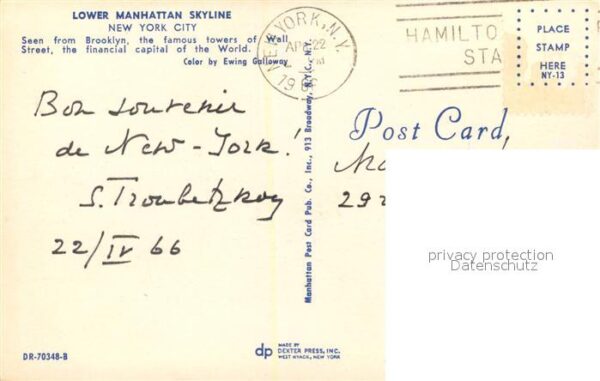 LOWER MANHATTAN SKYLINE
NEW YORK CITY
Seen from Brooklyn, the famous towers of Wall
Street, the financial capital of the World.
Color by Ewing Galloway
NEW YORK, N.Y.
APR 22
PM
1966
HAMILTO
STA
PLACE
STAMP
HERE
NY-13
Bon souvenir
de New-York!
S. Troubetzkoy
22/IV 66
Manhattan Post Card Pub. Co., Inc., 913 Broadway, N.Y.C., N.Y.
Post Card,
29
privacy protection
Datenschutz
DR-70348-B
dp MADE BY
DEXTER PRESS, INC.
WEST NYACK, NEW YORK